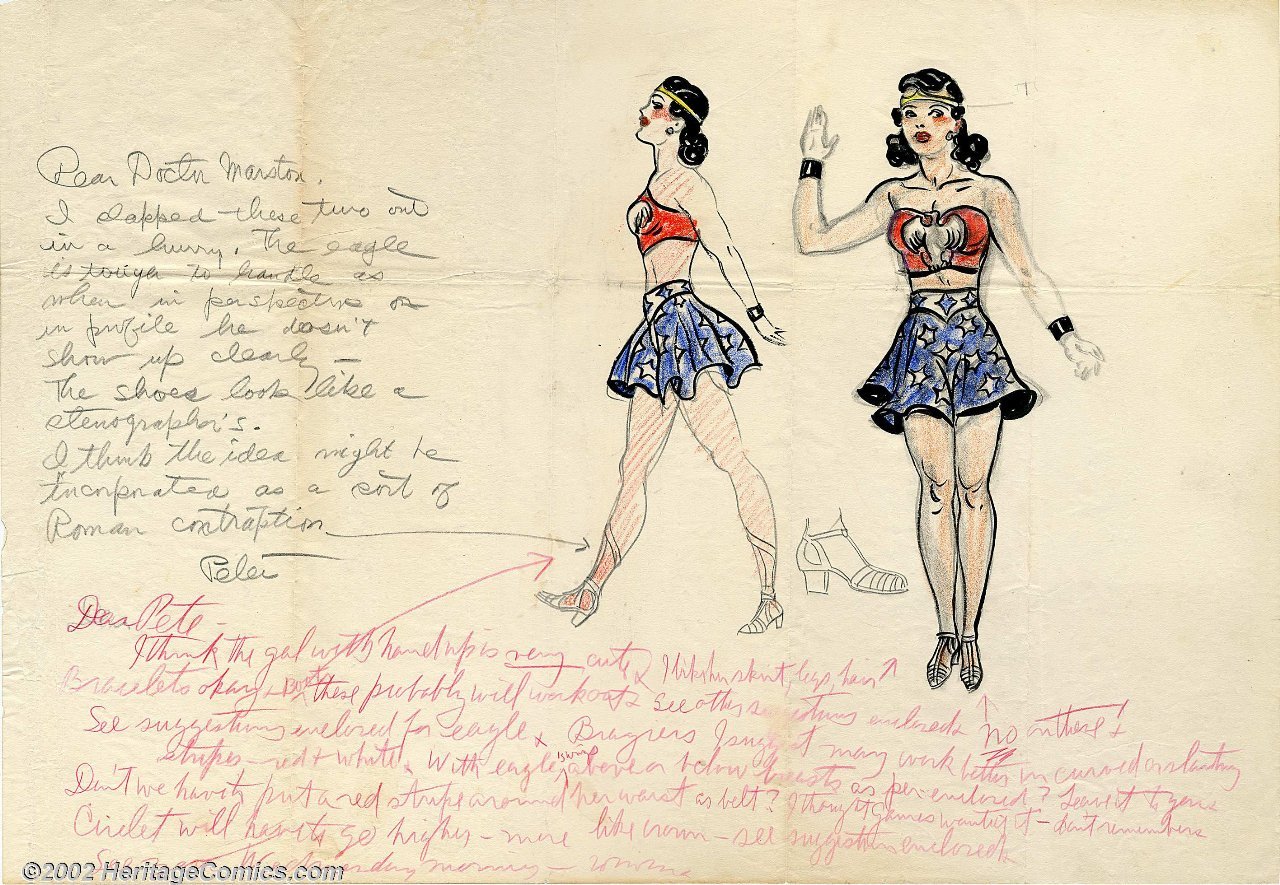 Dear Doctor Marston,
I slapped these two out
in a hurry. The eagle
is tough to handle as
when in perspective or
in profile he doesn't
show up clearly —
The shoes look like a
stenographer's.
I think the idea might be
incorporated as a sort of
Roman contraption
Peter
Dear Pete —
I think the gal with hand up is very cute. I like her skirt, legs, hair
Bracelets okay + boots these probably will work out. See other suggestions enclosed. No on these!
See suggestions enclosed for eagle. Brassiere I suggest may work better in curved or slanting
stripes — red + white. With eagle's wings above or below breasts as per enclosed? Leave it to you.
Don't we have to put a red stripe around her waist as belt? I thought Gaines wanted it — don't remember.
Circlet will have to go higher — more like crown — see suggestions enclosed.
See Wednesday morning —
©2002 HeritageComics.com